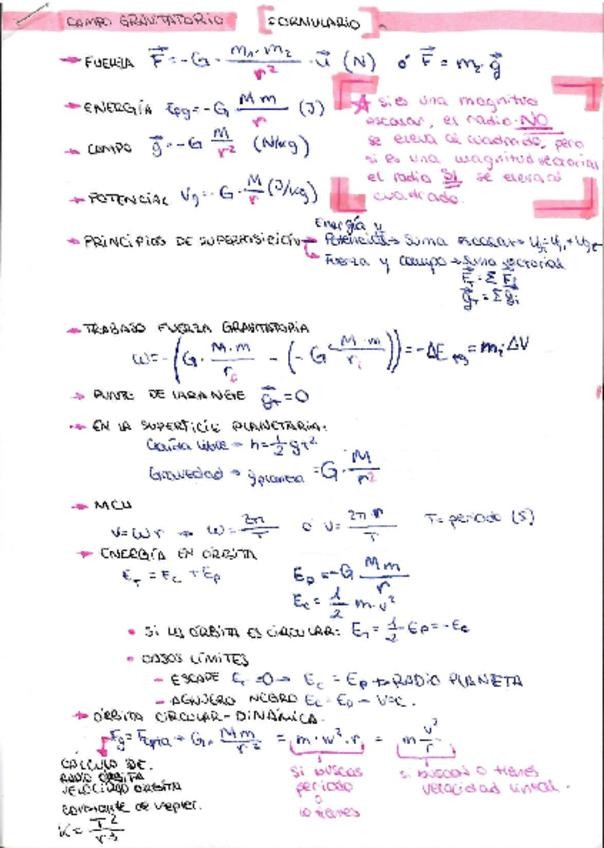 CAMPO GRAVITATORIO [FORMULARIO]
→ FUERZA F⃗ = -G · m₁·m₂/r² · u⃗ (N) ó F⃗ = m₂·g⃗
→ ENERGÍA Epg = -G · Mm/r (J)
→ CAMPO g⃗ = -G M/r² (N/kg)
→ POTENCIAL Vg = -G · M/r (J/kg)
☆ si es una magnitud
escalar, el radio NO
se eleva al cuadrado, pero
si es una magnitud vectorial
el radio SI se eleva al
cuadrado.
→ PRINCIPIOS DE SUPERPOSICIÓN
Energía y
Potencial → Suma escalar →
Fuerza y campo → Suma vectorial
F⃗T = Σ F⃗i
g⃗T = Σ g⃗i
→ TRABAJO FUERZA GRAVITATORIA
W = -(G · M·m/r - (-G · M·m/r)) = -ΔEpg = m · ΔV
→ PUNTO DE LAGRANGE g⃗T = 0
→ EN LA SUPERFICIE PLANETARIA:
Caída libre → h = 1/2 gt²
Gravedad → g planeta = G · M/r²
→ MCU
V = ωr → ω = 2π/T ó V = 2π·r/T T = periodo (s)
→ ENERGÍA EN ÓRBITA
ET = Ec + Ep Ep = -G Mm/r
Ec = 1/2 m·v²
• SI LA ÓRBITA ES CIRCULAR: ET = 1/2 · Ep = -Ec
• CASOS LÍMITES
- ESCAPE ET = 0 → Ec = Ep → RADIO PLANETA
- AGUJERO NEGRO Ec = Ep → V=c.
→ ÓRBITA CIRCULAR - DINÁMICA.
Fg = Fcpta → G · Mm/r² = m·ω²·r = m v²/r
CÁLCULO DE:
RADIO ÓRBITA
VELOCIDAD ÓRBITA
constante de kepler.
K = T²/r³
si buscas
periodo
o
lo tienes
si buscas o tienes
velocidad lineal.